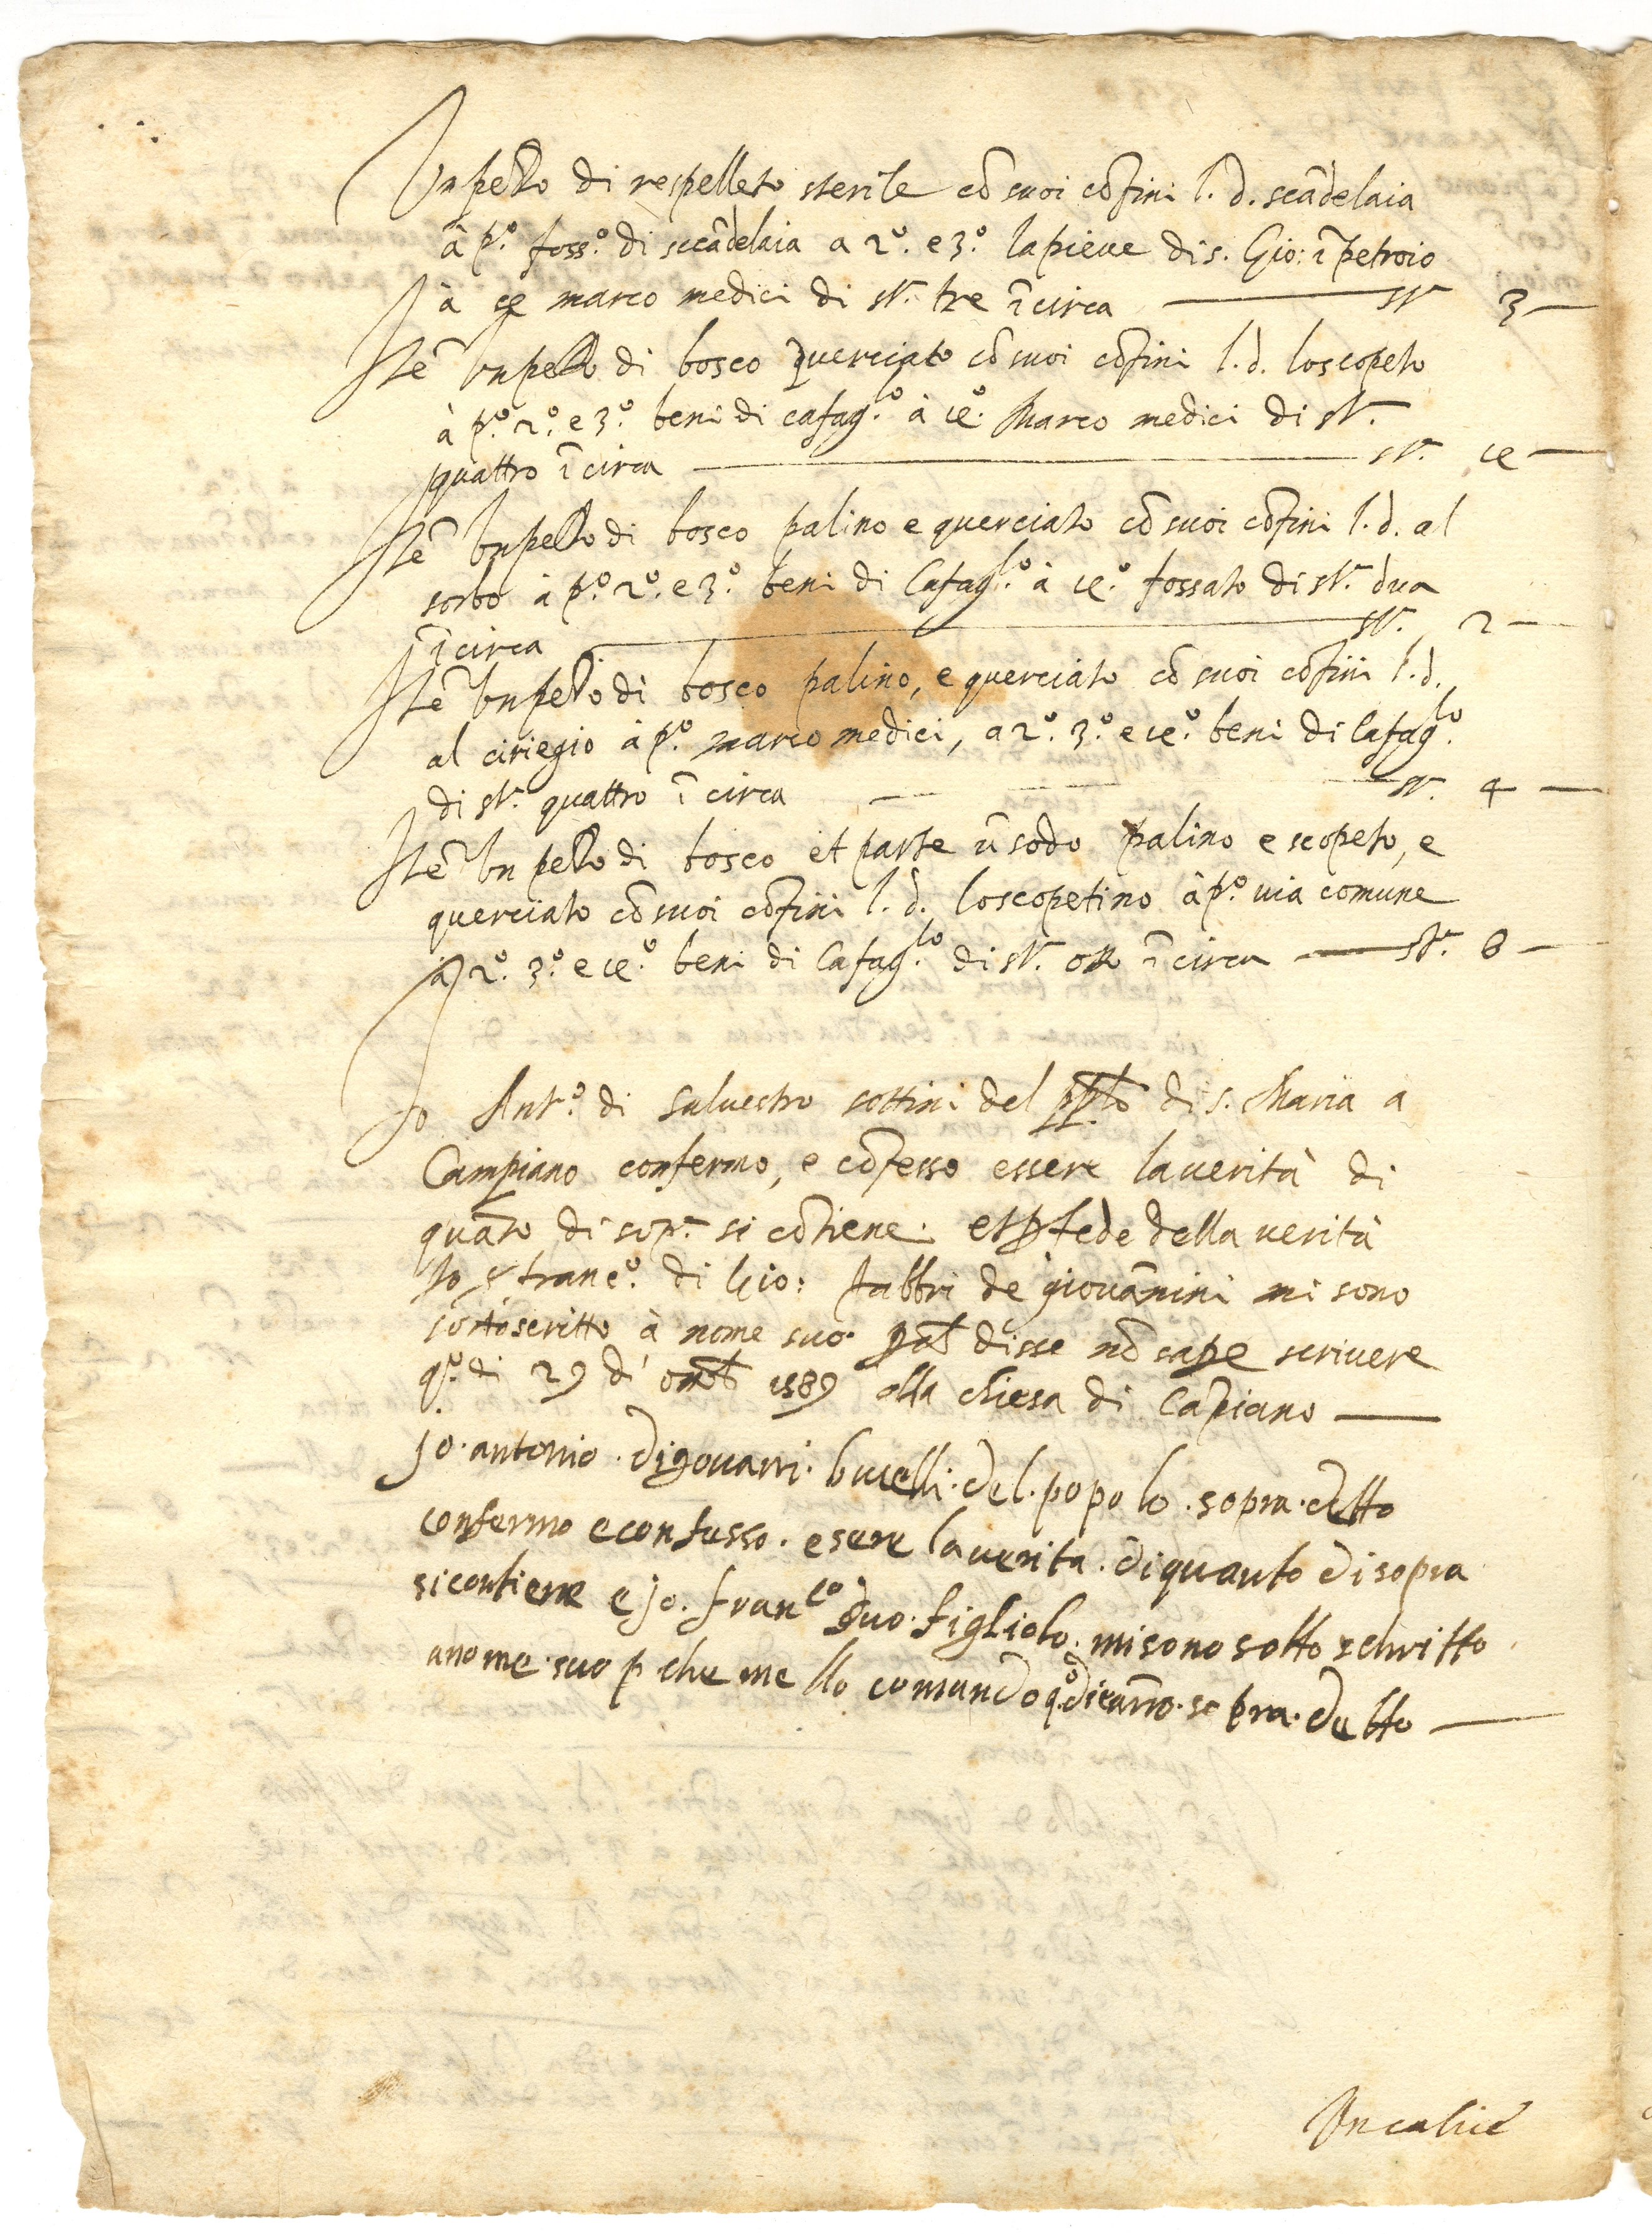 Un pezzo di respelleto sterile cō suoi cōfini l. d. scādelaia
à p.º foss.º di scādelaia a 2º. e 3.º la pieve di s. Gio: ī petroio
à 4 marco medici di st.ª tre ī circa — st.ª 3 —
Itē un pezzo di bosco querciato cō suoi cōfini l. d. lo scopeto
à p.º 2.º e 3.º beni di cafag.lo à 4º. Marco medici di st.ª
quattro ī circa — st.ª 4 —
Itē un pezzo di bosco palino e querciato cō suoi cōfini l. d. al
sorbo à p.º 2.º e 3.º beni di Cafag.lo à 4.º fossato di st.ª dua
ī circa — st.ª 2 —
Itē un pezzo di bosco palino, e querciato cō suoi cōfini l. d.
al ciriegio à p.º marco medici, a 2.º 3.º e 4.º beni di Cafag.lo
di st.ª quattro ī circa — st.ª 4 —
Itē un pezzo di bosco et parte ū sodo palino e scopeto, e
querciato cō suoi cōfini l. d. lo scopetino à p.º via comune
à 2.º 3.º e 4.º beni di Cafag.lo di st.ª otto ī circa — st.ª 8 —
Io Ant.º di Salvestro sottini del pplo di s. Maria a
Campiano confermo, e cōfesso essere la verità di
quāto di sop.ª si cōtiene. et p fede della verità
Io franc.º di Gio: fabbri de giovānini mi sono
sottoscritto à nome suo disse nō sape scrivere
q.º di 29 d' 1589 alla chiesa di Cāpiano —
Jo. antonio. di govanni. bucelli. del. popolo. sopra. detto
confermo e confesso. esere la verita. di quanto di sopra
si contiene e jo. fran.co suo. figliolo. mi sono sotto schritto
a nome. suo p che me llo comando q.º di e anno. sopra. detto —
Un calicē